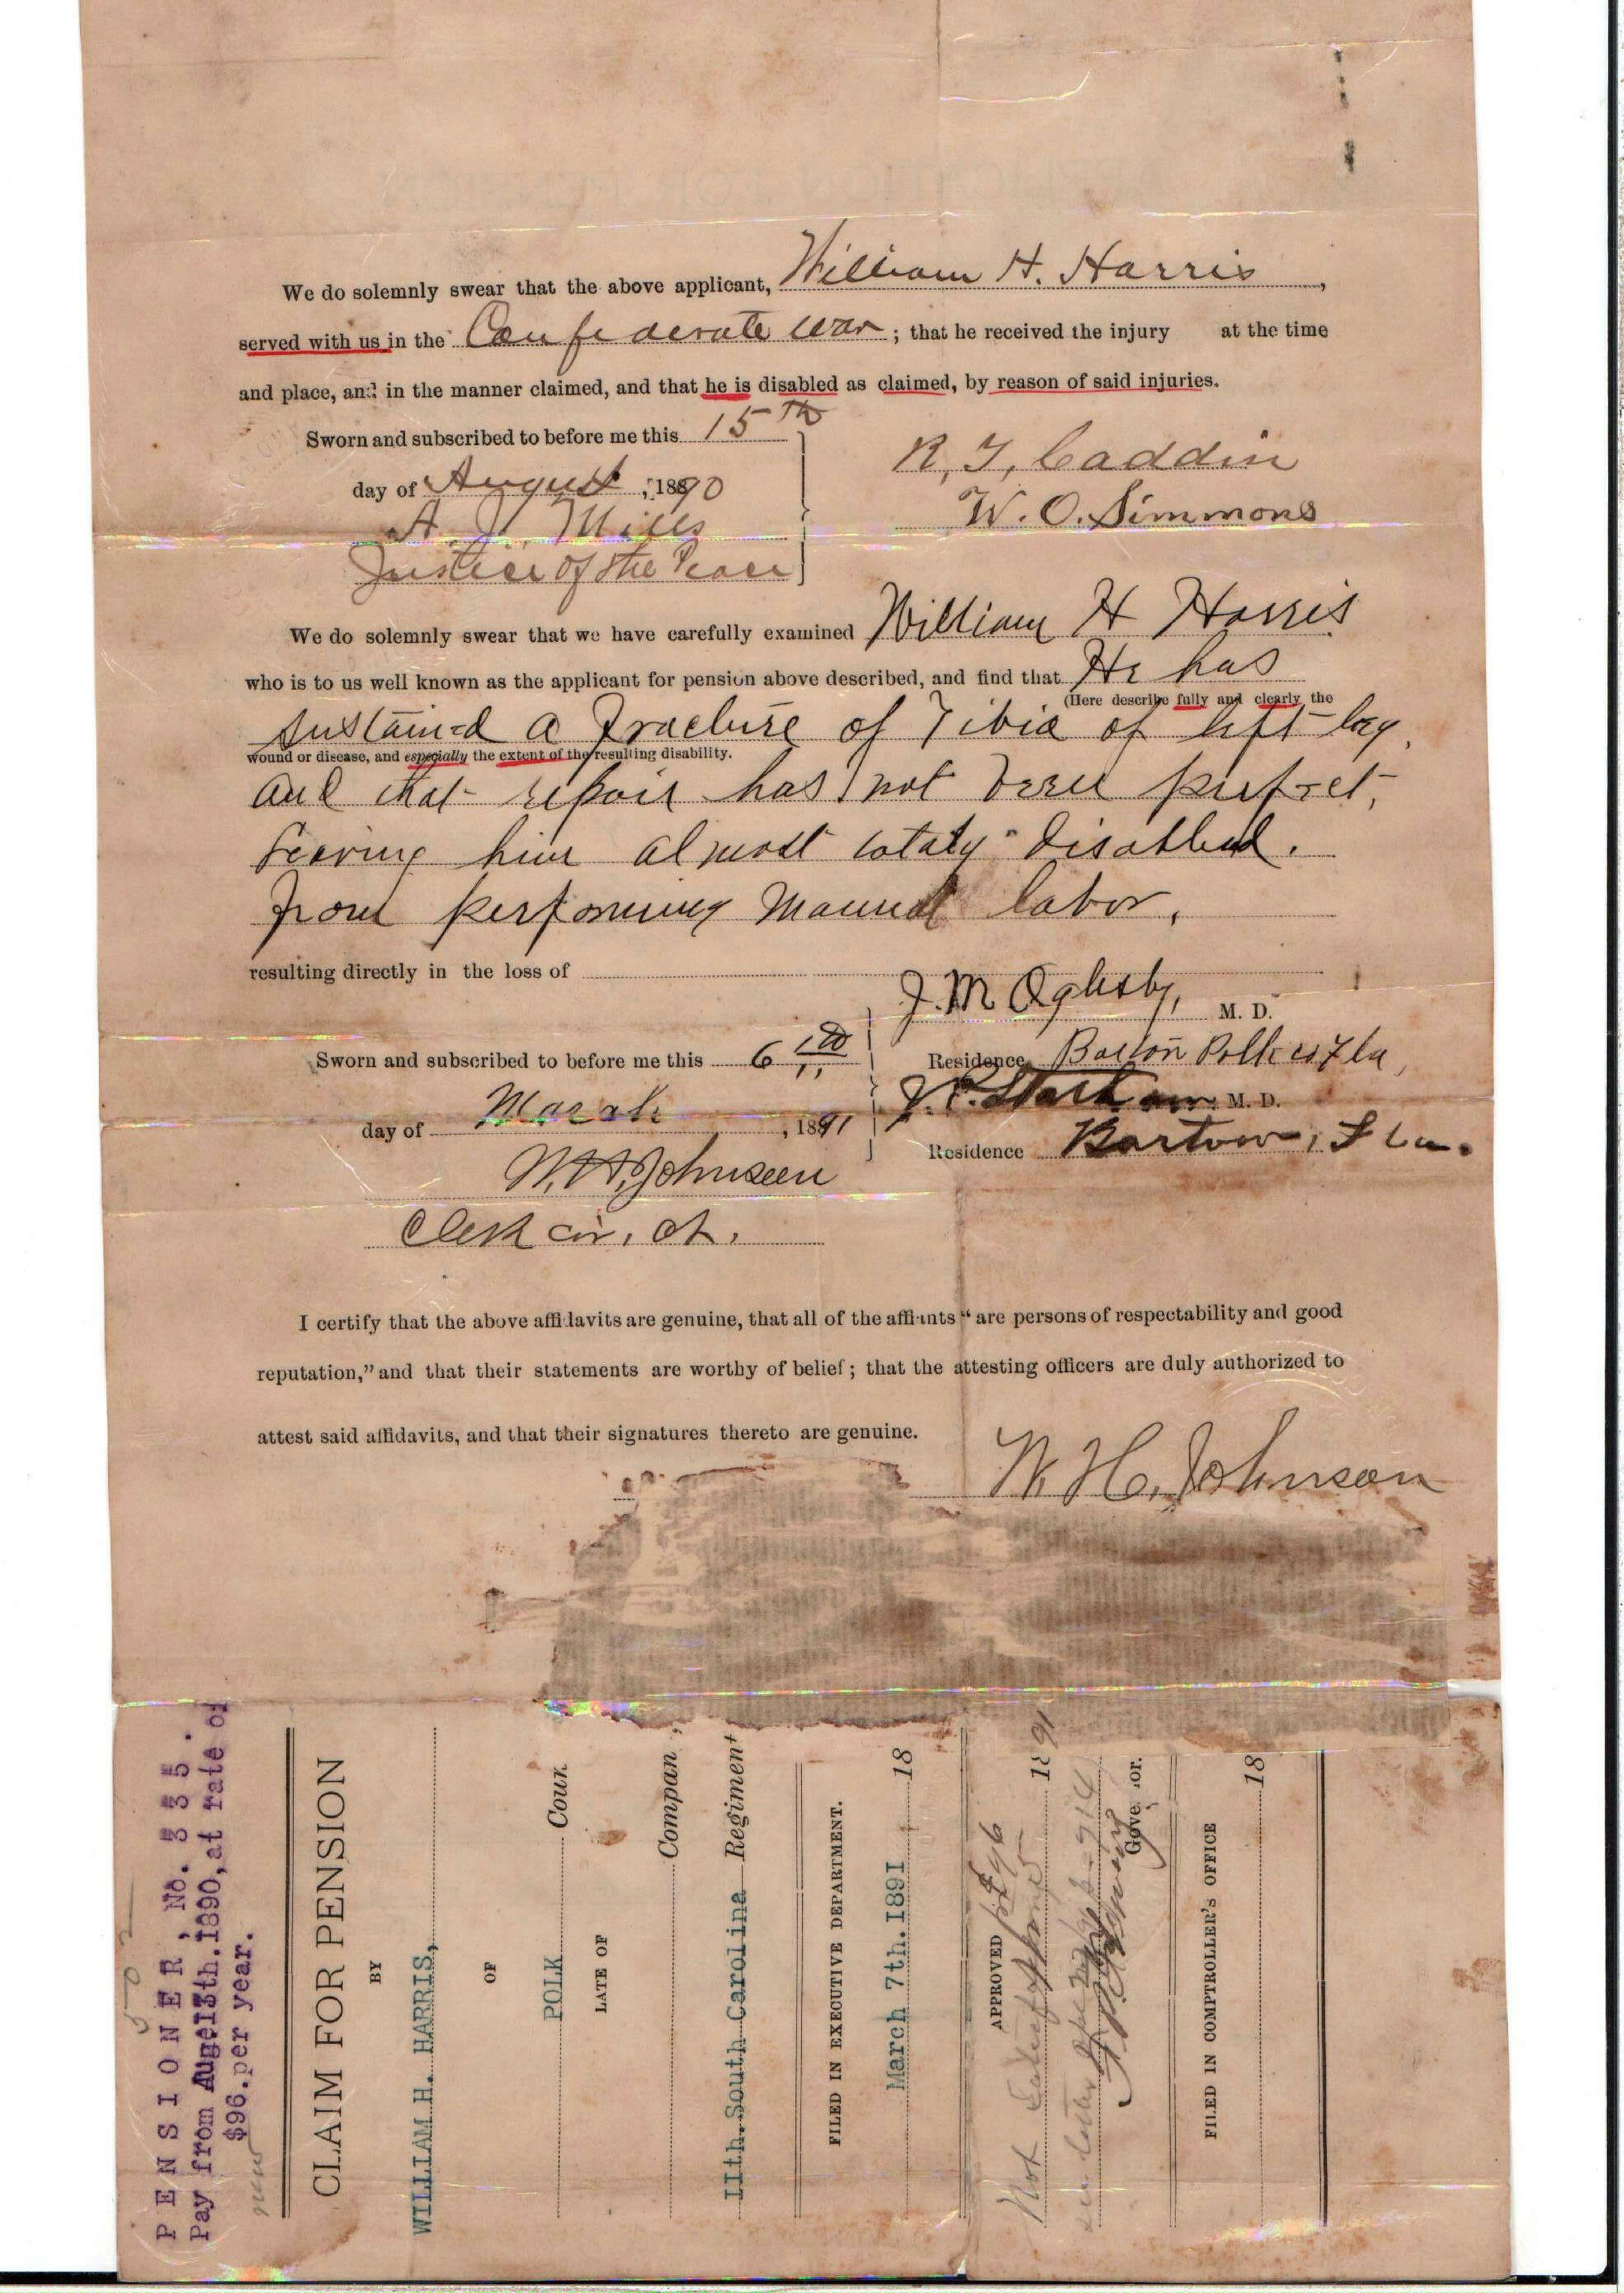 We do solemnly swear that the above applicant, William H. Harris,
served with us in the Confederate war; that he received the injury at the time
and place, and in the manner claimed, and that he is disabled as claimed, by reason of said injuries.
Sworn and subscribed to before me this 15th
day of August, 1890
A. J. Mills
Justice of the Peace
R. J. Caddin
W. O. Simmons
We do solemnly swear that we have carefully examined William H Harris
who is to us well known as the applicant for pension above described, and find that He has
(Here describe fully and clearly the
sustained a fracture of Tibia of left leg,
wound or disease, and especially the extent of the resulting disability.
and that repair has not been perfect,
leaving him almost totaly disabled.
from performing manual labor,
resulting directly in the loss of
J. M Oglesby, M. D.
Sworn and subscribed to before me this 6th
Residence Bartow Polk co Fla,
day of March, 1891
M. D.
Residence Bartow, Fla.
W. H. Johnson
Clerk cir. ct.
I certify that the above affidavits are genuine, that all of the affiants "are persons of respectability and good
reputation," and that their statements are worthy of belief; that the attesting officers are duly authorized to
attest said affidavits, and that their signatures thereto are genuine.
W. H. Johnson
502
PENSIONER, No. 335.
Pay from Auge13th.1890, at rate of
$96.per year.
CLAIM FOR PENSION
BY
WILLIAM H. HARRIS,
OF
POLK Coun
LATE OF
Compan
11th. South Carolina Regiment
FILED IN EXECUTIVE DEPARTMENT.
March 7th. 1891 18
APPROVED $96 1891
Not
Governor.
FILED IN COMPTROLLER'S OFFICE
18